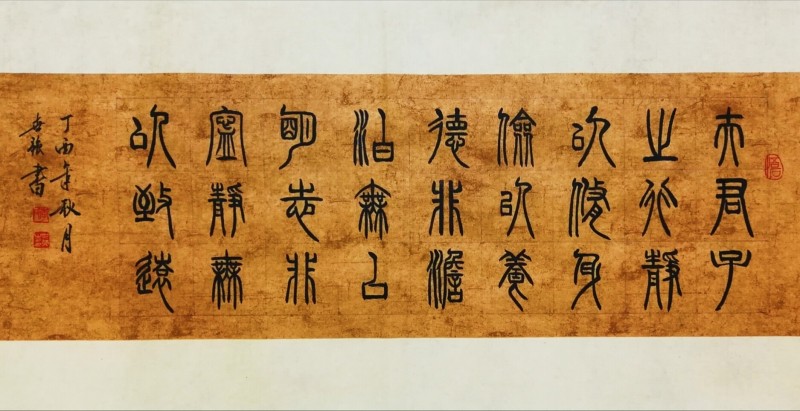 夫君子
之行靜
以修身
儉以養
德非澹
泊無以
明志非
寧靜無
以致遠
丁酉年秋月
書